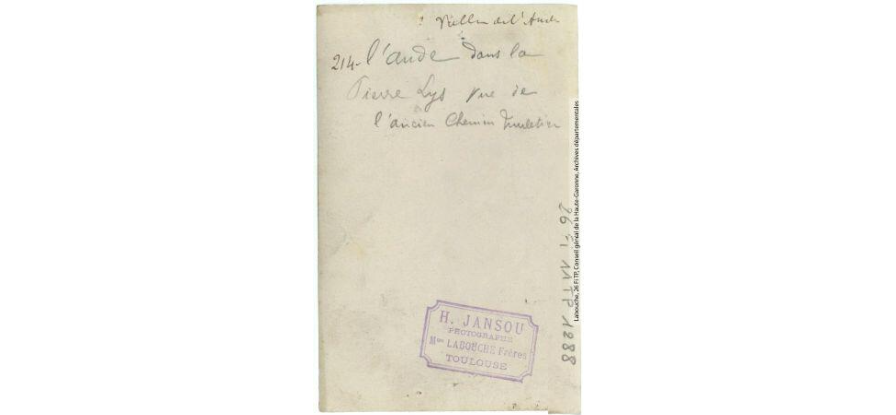 Vallée de l'Aude
214 - l'aude dans la
Pierre Lys vue de
l'ancien Chemin muletier
H. JANSOU
PHOTOGRAPHE
Mon LABOUCHE Frères
TOULOUSE
26 Fi 11 TP 1288
Labouche, 26 FI TP, Conseil général de la Haute-Garonne, Archives départementales